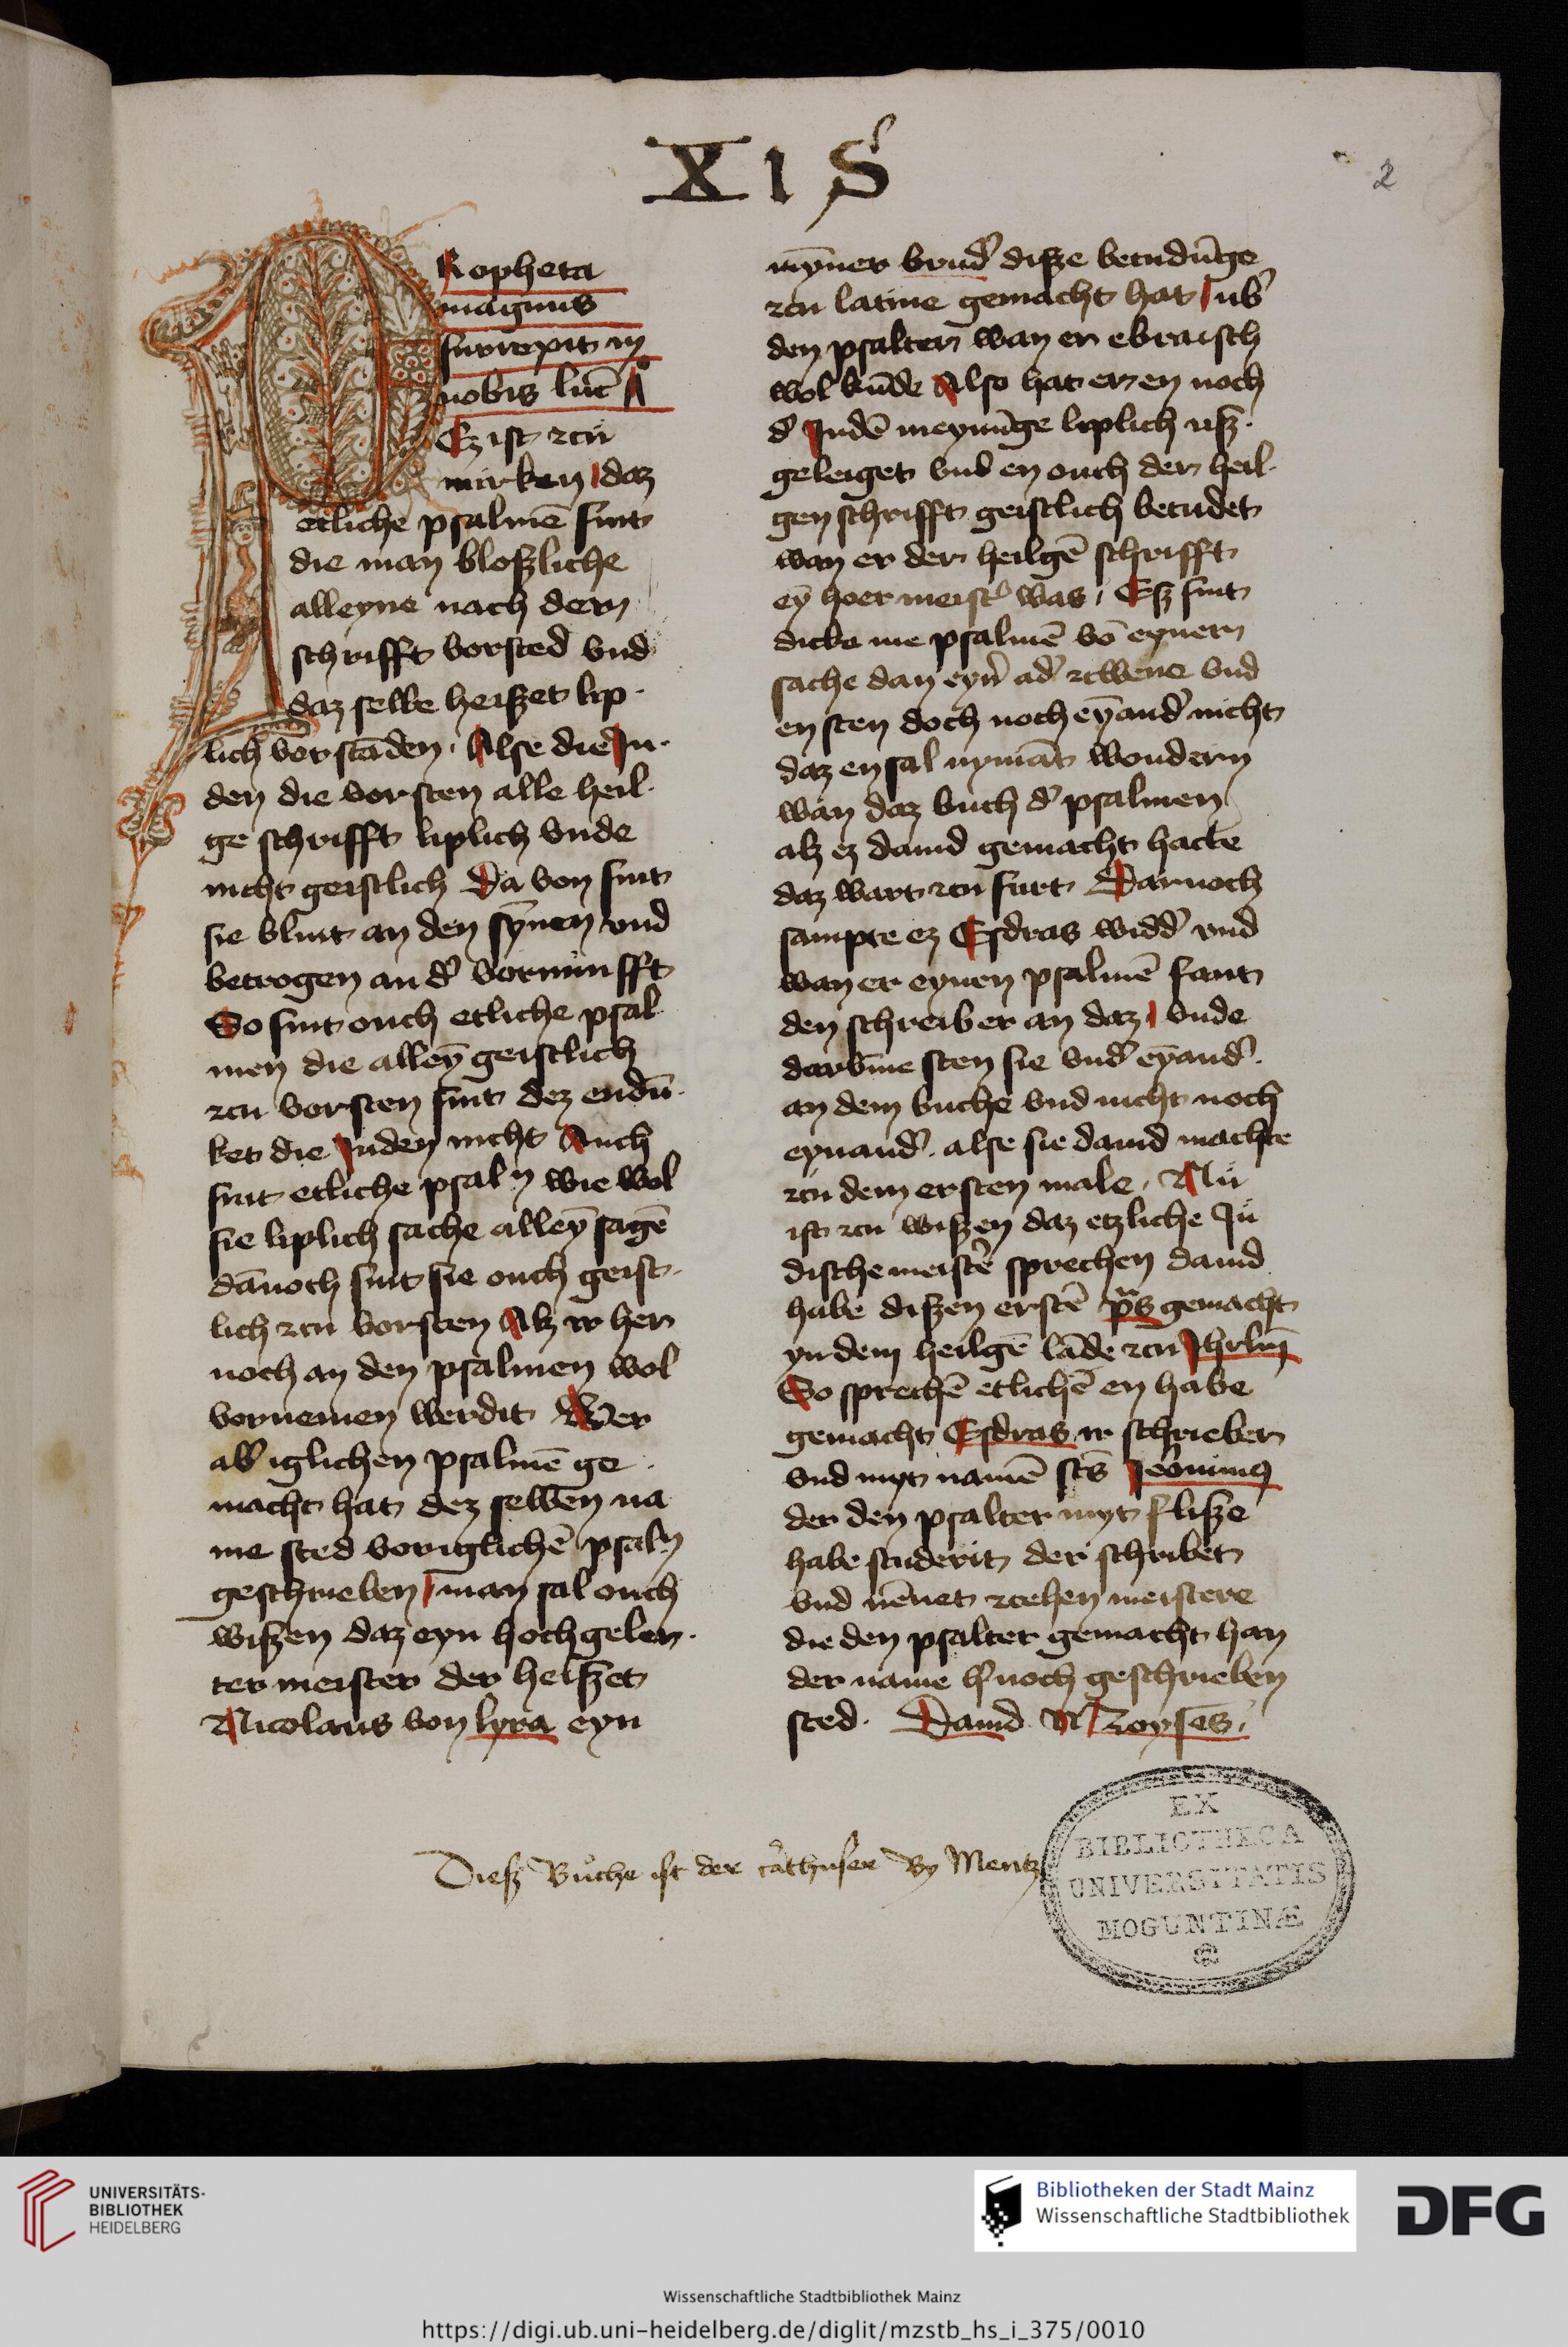 X I S
2
PRopheta
magnus
surrexit in
nobis luc̄ A
Ez ist zcu
mirken daz
etliche psalmē sint
die man bloßliche
alleyne nach dem
schrifft vorsted vnd
daz selbe heiszet lip·
lich vorstāden· Alse die Ju·
den die vorsten alle heil·
ge schrifft liplich vnde
nicht geistlich Da von sint
sie blint an den sȳnen vnd
betrogen an d' vornunfft
So sint ouch etliche psal
men die alleȳ geistlich
zcu vorsten sint dez endū·
ket die Juden nicht Auch
sint etliche psaln wie wol
sie liplich sache alleȳ sagē
dānoch sint sie ouch geist·
lich zcu vorsten Alz ir her
noch an den psalmen wol
vornemen werdit Wer
ab' iglichen psalmē ge·
macht hat dez selben na
me sted vor iglichē psaln
geschrieben man sal ouch
wiszen daz eyn hochgeler·
ter meister der heiszet
Nicolaus von lyra eyn
mȳner brud' disze betudūge
zcu latine gemacht hat ub'
den psalter wan er ebraisch
wol kūde Also hat er en noch
d' Judē meynūge liplich usz·
geleiget vnd en ouch der heil·
gen schrifft geistlich betudet
wan er der heilgē schrifft
eȳ hoer meist' was· Esz sint
dicke me psalmē vō eyner
sache dan eyn' ad' zcwene vnd
en sten doch noch eȳand' nicht
daz en sal nymāt wondern
wan daz buch d' psalmen
alz ez dauid gemacht hatte
daz wart zcu furt Darnoch
sampte ez Esdras widd' vnd
wan er eynen psalmē fant
den schreib er an daz vnde
darvme sten sie vnd' eȳand'·
an dem buche vnd nicht noch
eynand'· alse sie dauid machte
zcu dem ersten male· Nu
ist zcu wiszen daz etzliche Ju
dische meist'e sprechen dauid
habe diszen erstē ps gemacht
yn dem heilgē lāde zcu Jhrlm̄
So sprechē etlichē en habe
gemacht Esdras ir schrieber
vnd myt namē sc̄s Jeronimꝯ
der den psalter myt flisze
habe studerit der schribet
vnd nēnet zcehen meistere
die den psalter gemacht han
der name h'noch geschrieben
sted· Dauid Moyses·
Diesz Buche ist der cathuser By Mentz
EX
BIBLIOTHECA
UNIVERSITATIS
MOGUNTINÆ
UNIVERSITÄTS-
BIBLIOTHEK
HEIDELBERG
Bibliotheken der Stadt Mainz
Wissenschaftliche Stadtbibliothek
DFG
Wissenschaftliche Stadtbibliothek Mainz
https://digi.ub.uni-heidelberg.de/diglit/mzstb_hs_i_375/0010